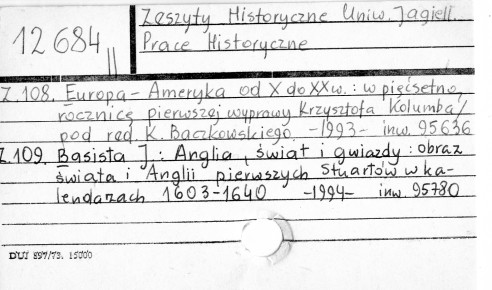 12684 II
Zeszyty Historyczne Uniw. Jagiell.
Prace Historyczne
Z. 108. Europa - Ameryka od X do XX w. : w pięćsetną
rocznicę pierwszej wyprawy Krzysztofa Kolumba /
pod red. K. Baczkowskiego. -1993- inw. 95636
Z. 109. Basista J. : Anglia, świat i gwiazdy : obraz
świata i Anglii pierwszych Stuartów w ka-
lendarzach 1603-1640 -1994- inw. 95780
DUJ 897/73. 15000